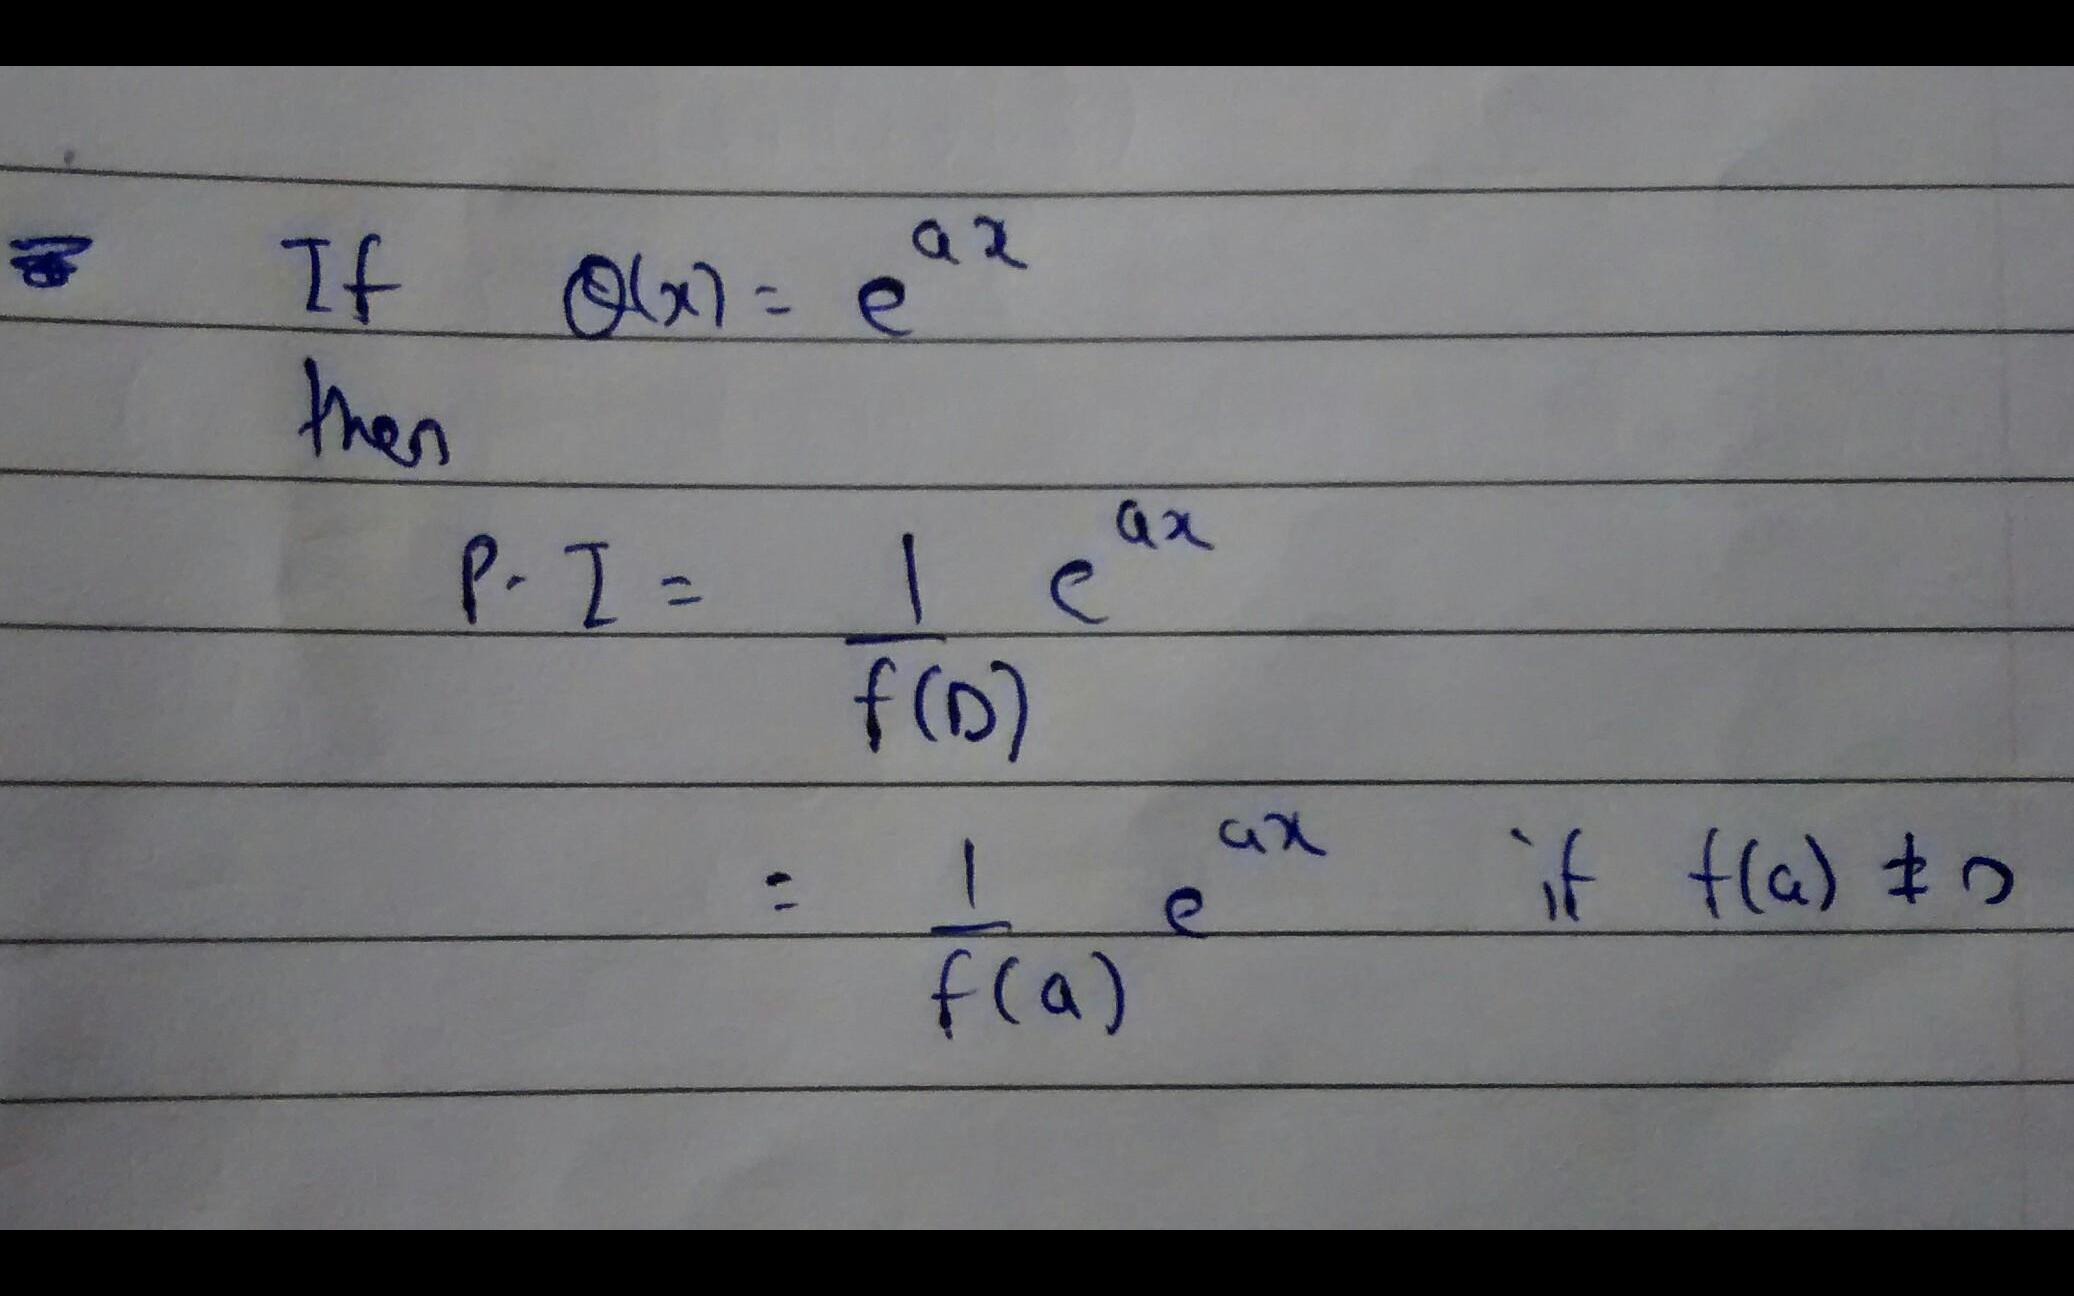 If Q(x) = e^{ax}
then
P. I = \frac{1}{f(D)} e^{ax}
= \frac{1}{f(a)} e^{ax} if f(a) ≠ 0